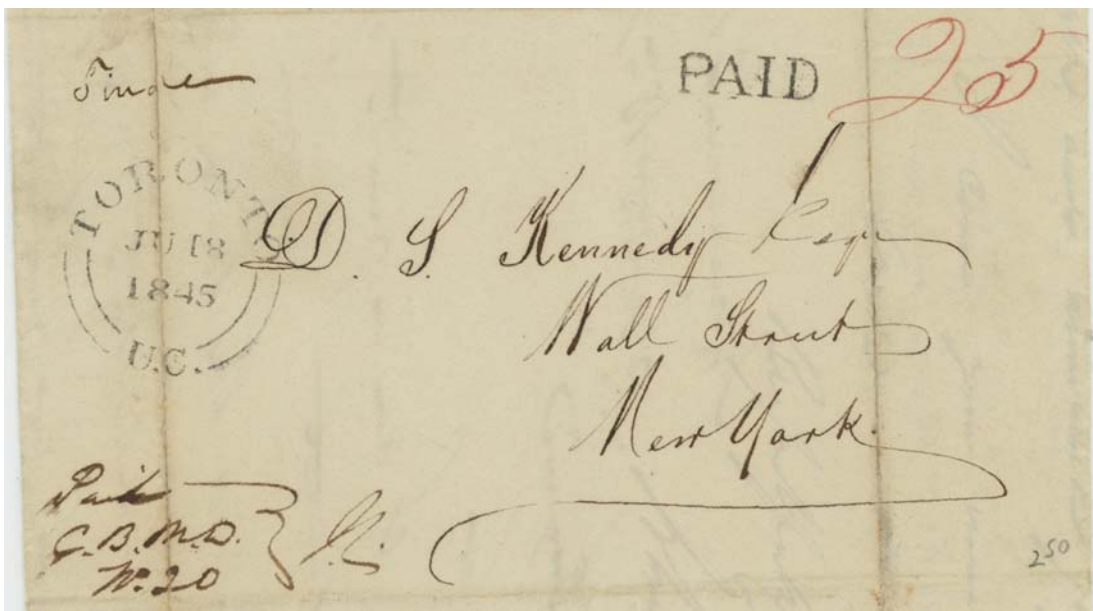 Single
PAID 25
TORONTO
JU 18
1845
U.C.
D. S. Kennedy Esqr
Wall Street
New York.
Paid
C. B. M. D.
No. 20
250